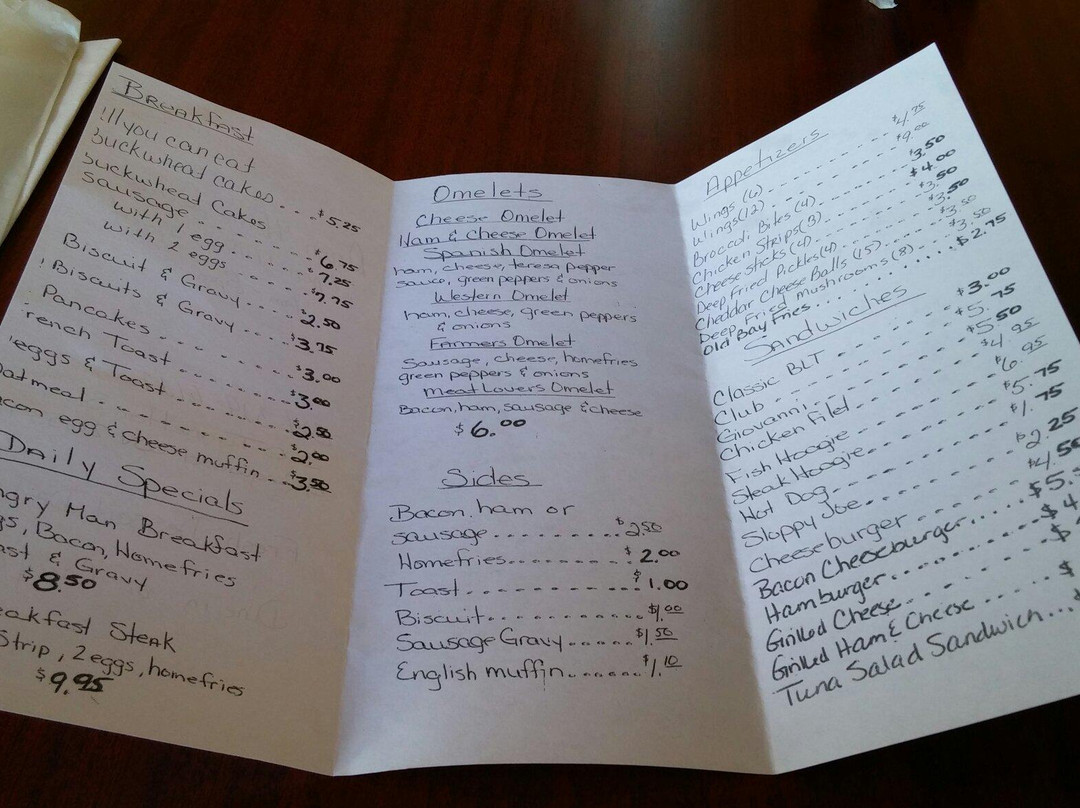 Breakfast
!ll you can eat
buckwheat cakes... $5.25
buckwheat Cakes
sausage........ $6.75
with 1 egg...... $7.25
with 2 eggs..... $7.75
Biscuit & Gravy.. $2.50
Biscuits & Gravy.. $3.75
Pancakes....... $3.00
rench Toast...... $3.00
eggs & Toast..... $2.50
Oatmeal........ $2.00
acon egg & cheese muffin.. $3.50
Daily Specials
ngry Man Breakfast
gs, Bacon, Homefries
ast & Gravy
$8.50
eakfast Steak
Strip, 2 eggs, homefries
$9.95
Omelets
Cheese Omelet
Ham & Cheese Omelet
Spanish Omelet
ham, cheese, teresa pepper
sauce, green peppers & onions
Western Omelet
ham, cheese, green peppers
& onions
Farmers Omelet
Sausage, cheese, homefries
green peppers & onions
meat Lovers Omelet
Bacon, ham, sausage & cheese
$6.00
Sides
Bacon, ham or
sausage......... $2.50
Homefries....... $2.00
Toast........... $1.00
Biscuit......... $1.00
Sausage Gravy.... $1.50
English muffin...... $1.10
Appetizers
Wings (6) $4.75
Wings (12) $9.00
Broccoli Bites (4) $3.50
Chicken Strips (3) $4.00
Cheese Sticks (4) $3.50
Deep Fried Pickles (4) $3.50
Cheddar Cheese Balls (15) $3.50
Deep Fried mushrooms (8) $3.50
Old Bay Fries $2.75
Sandwiches
Classic BLT $3.00
Club $5.75
Giovanni $5.50
Chicken Filet $4.95
Fish Hoogie $6.95
Steak Hoogie $5.75
Hot Dog $1.75
Sloppy Joe $2.25
Cheeseburger $4.50
Bacon Cheeseburger $5.
Hamburger $4
Grilled Cheese $
Grilled Ham & Cheese $
Tuna Salad Sandwich... $